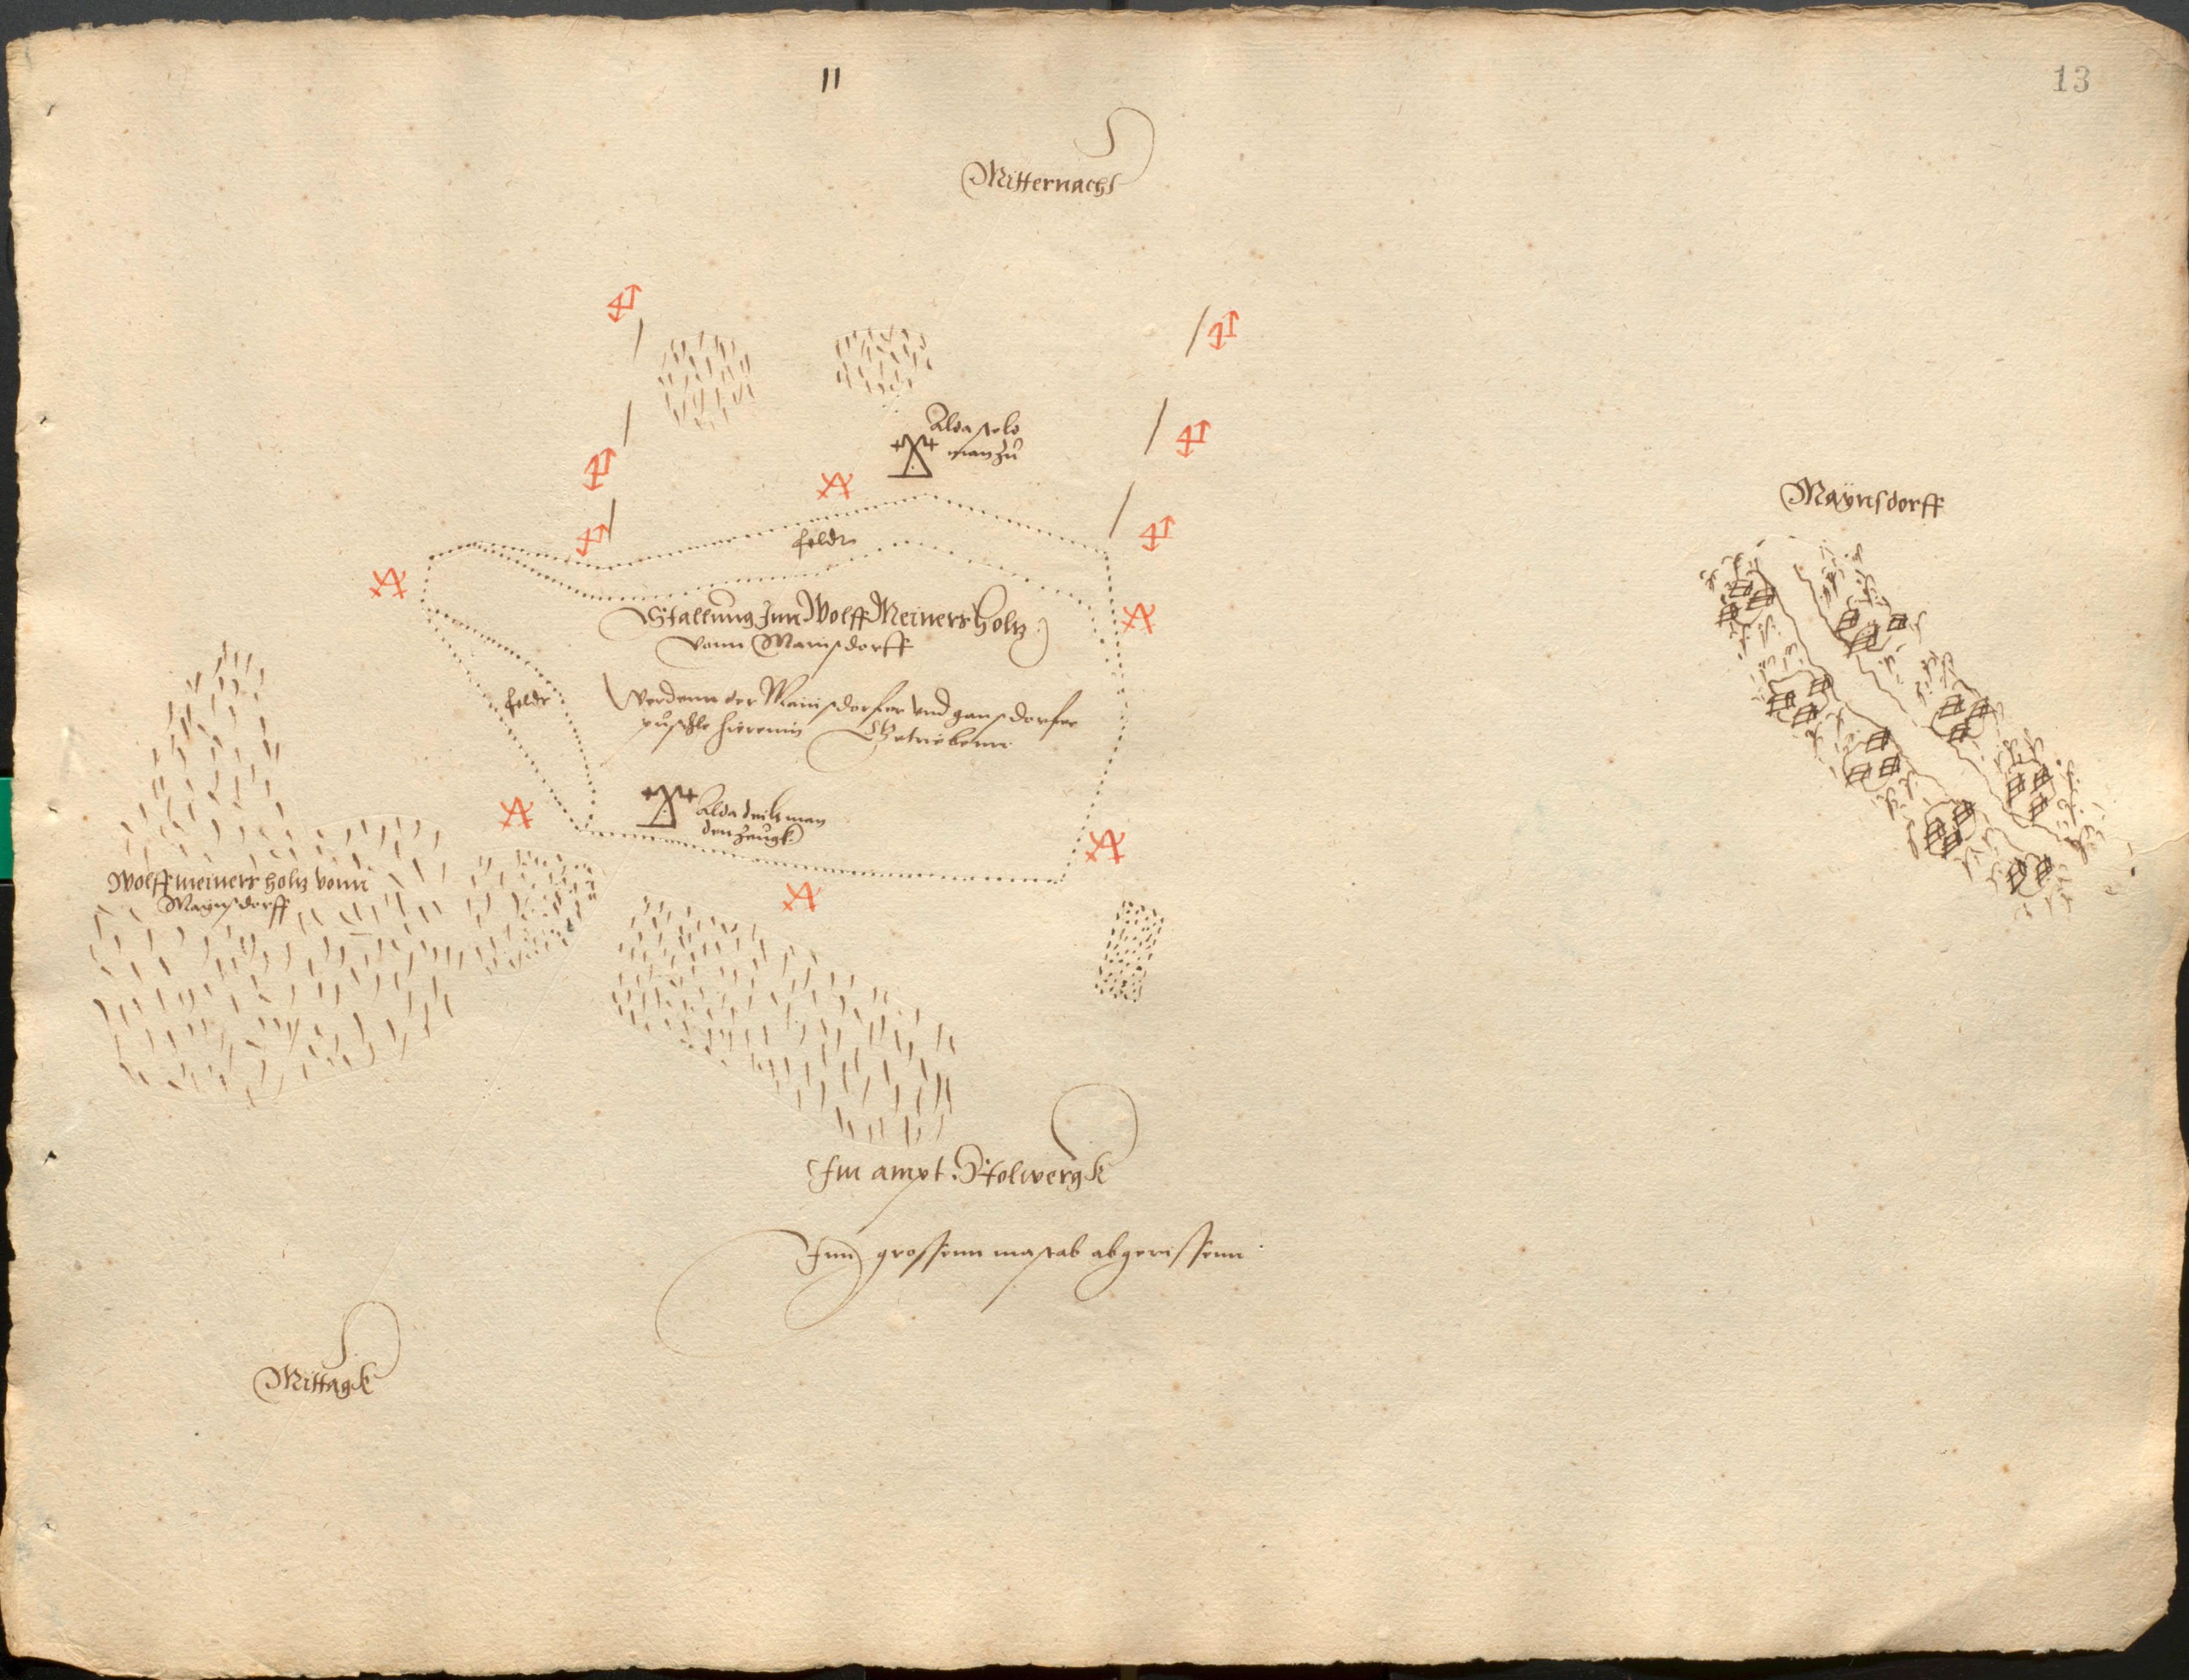 11
13
Mitternacht
Alda stelt
man zu
Maÿnsdorff
feldt
Stallung Inn Wolff Meiners holtz
vonn Mainsdorff
feldt
Werdenn der Mainsdorfer vnd gansdorfer
püschle hierein Getriebenn
Alda deilt man
den zeugk
Wolff meiners holtz vonn
Maynsdorff
Im ampt Stolwergk
Inn grossenn mastab abgerissenn
Mittagk